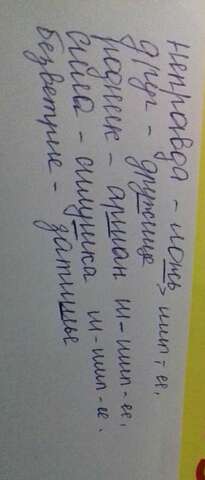 Неправда - ложь > шип - ее,
друг - дружище
родник - аршан ш - шип - ее,
сила - силушка ш - шип - ее.
безветрие - затишье